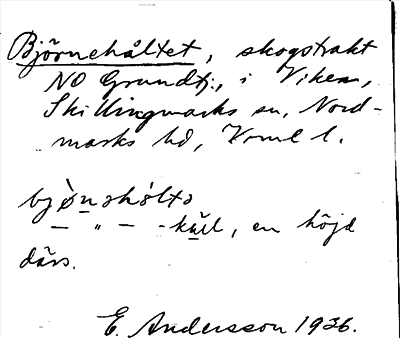 Björnehåltet, skogstrakt
NO Grundtj., i Viken,
Skillingmarks sn, Nord-
marks hd, Vrml l.
bjö̀nəhólta
— " — -kul, en höjd
därs.
E. Andersson 1936.